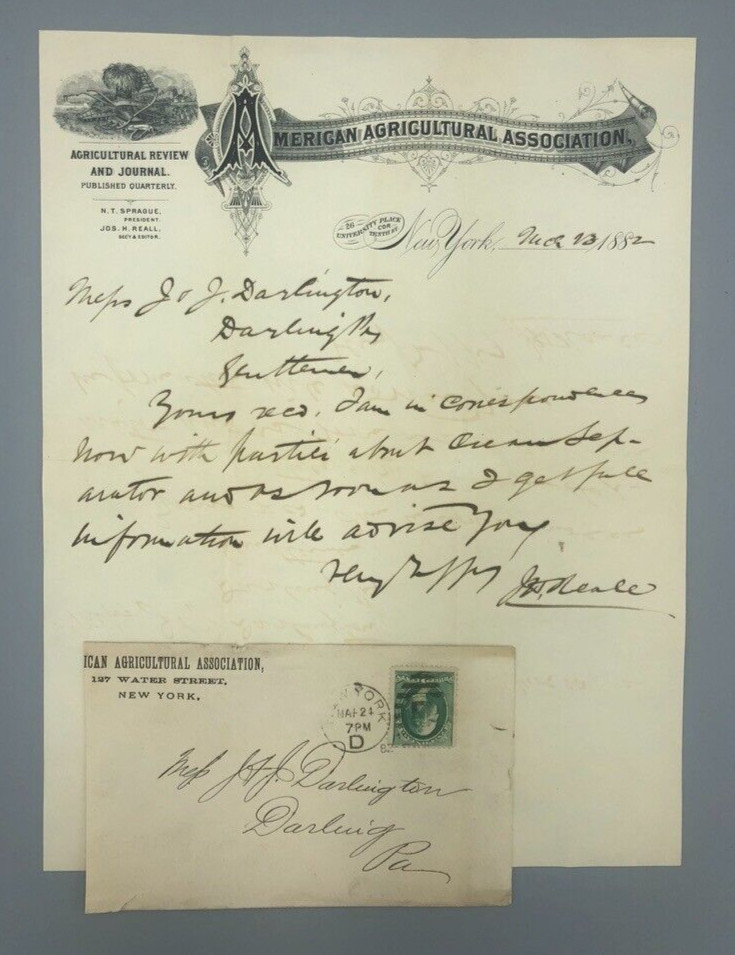 AGRICULTURAL REVIEW
AND JOURNAL.
PUBLISHED QUARTERLY.
N. T. SPRAGUE,
PRESIDENT.
JOS. H. REALL,
SEC'Y & EDITOR.
AMERICAN AGRICULTURAL ASSOCIATION.
26
UNIVERSITY PLACE
COR
New York, 1882
Messrs J & J. Darlington,
Darling Pa
Gentlemen,
Yours recd. I am in correspondence
now with parties about Cream Sep-
arator and as soon as I get full
information will advise you
Very
Jos. H. Reall
ICAN AGRICULTURAL ASSOCIATION,
127 WATER STREET,
NEW YORK.
W YORK
MAR 24
7PM
D
82
Mess J & J. Darlington
Darling
Pa